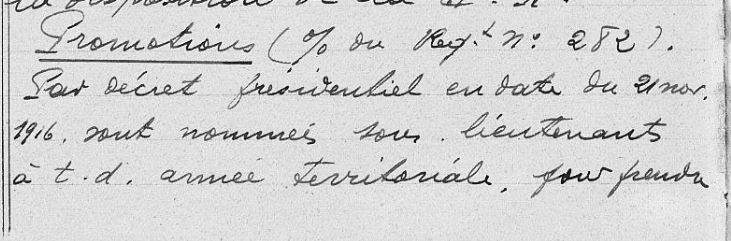 la disposition de la
Promotions (% du Reg.t n: 282).
Par décret présidentiel en date du 21 nov.
1916. sont nommés sous. lieutenants
à t. d. armée territoriale, pour prendre